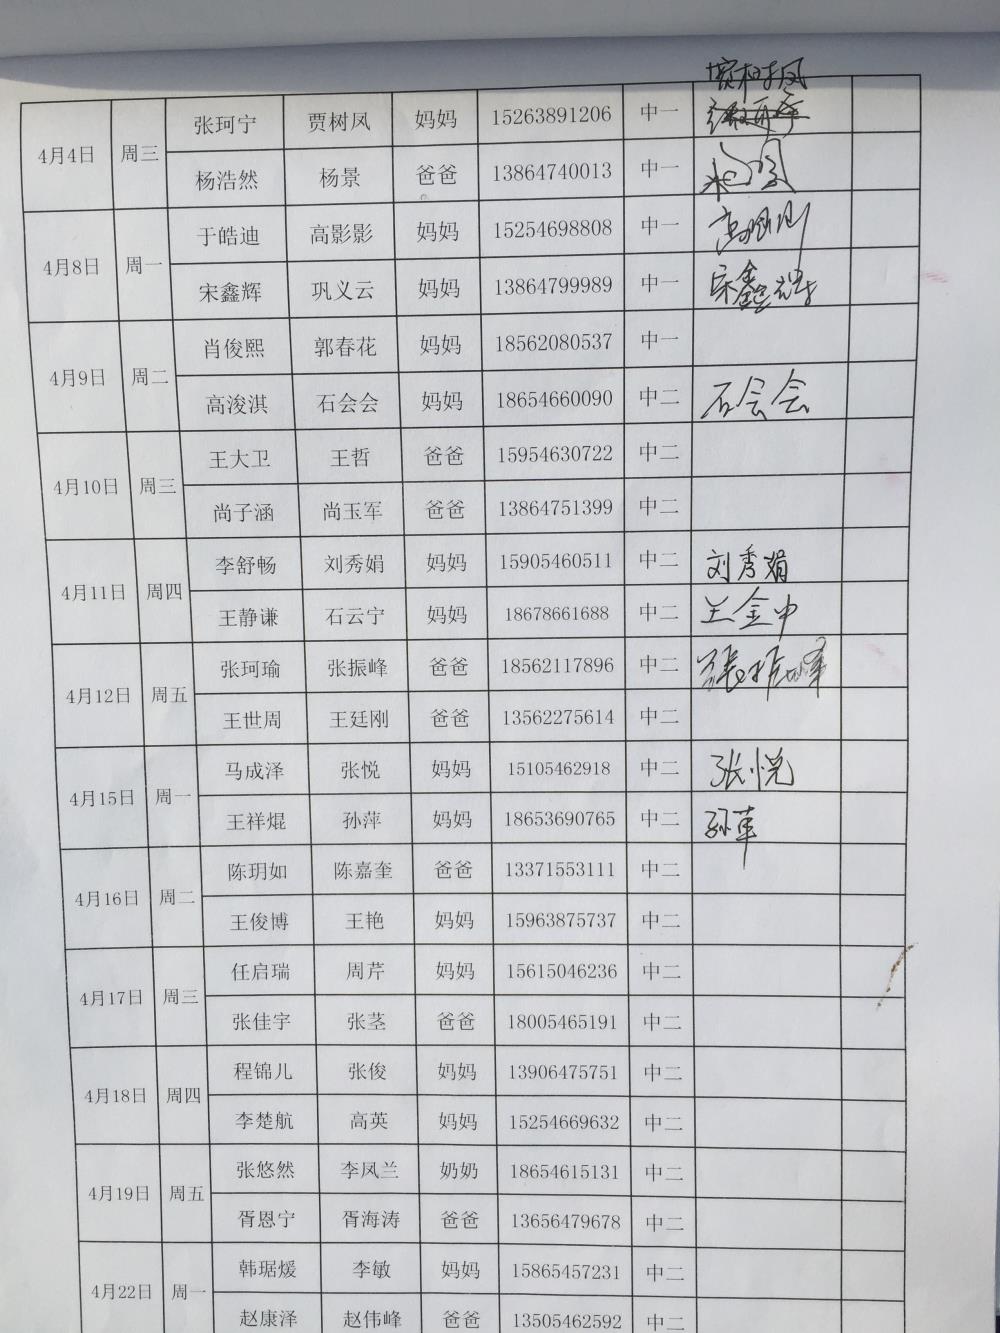 贾树凤
4月4日 周三 张珂宁 贾树凤 妈妈 15263891206 中一
杨浩然 杨景 爸爸 13864740013 中一 杨景
4月8日 周一 于皓迪 高影影 妈妈 15254698808 中一 高影影
宋鑫辉 巩义云 妈妈 13864799989 中一 宋鑫辉
4月9日 周二 肖俊熙 郭春花 妈妈 18562080537 中一
高浚淇 石会会 妈妈 18654660090 中二 石会会
4月10日 周三 王大卫 王哲 爸爸 15954630722 中二
尚子涵 尚玉军 爸爸 13864751399 中二
4月11日 周四 李舒畅 刘秀娟 妈妈 15905460511 中二 刘秀娟
王静谦 石云宁 妈妈 18678661688 中二 王金中
4月12日 周五 张珂瑜 张振峰 爸爸 18562117896 中二 张振峰
王世周 王廷刚 爸爸 13562275614 中二
4月15日 周一 马成泽 张悦 妈妈 15105462918 中二 张悦
王祥焜 孙萍 妈妈 18653690765 中二 孙萍
4月16日 周二 陈玥如 陈嘉奎 爸爸 13371553111 中二
王俊博 王艳 妈妈 15963875737 中二
4月17日 周三 任启瑞 周芹 妈妈 15615046236 中二
张佳宇 张茎 爸爸 18005465191 中二
4月18日 周四 程锦儿 张俊 妈妈 13906475751 中二
李楚航 高英 妈妈 15254669632 中二
4月19日 周五 张悠然 李凤兰 奶奶 18654615131 中二
胥恩宁 胥海涛 爸爸 13656479678 中二
4月22日 周一 韩琚煖 李敏 妈妈 15865457231 中二
赵康泽 赵伟峰 爸爸 13505462592 中二